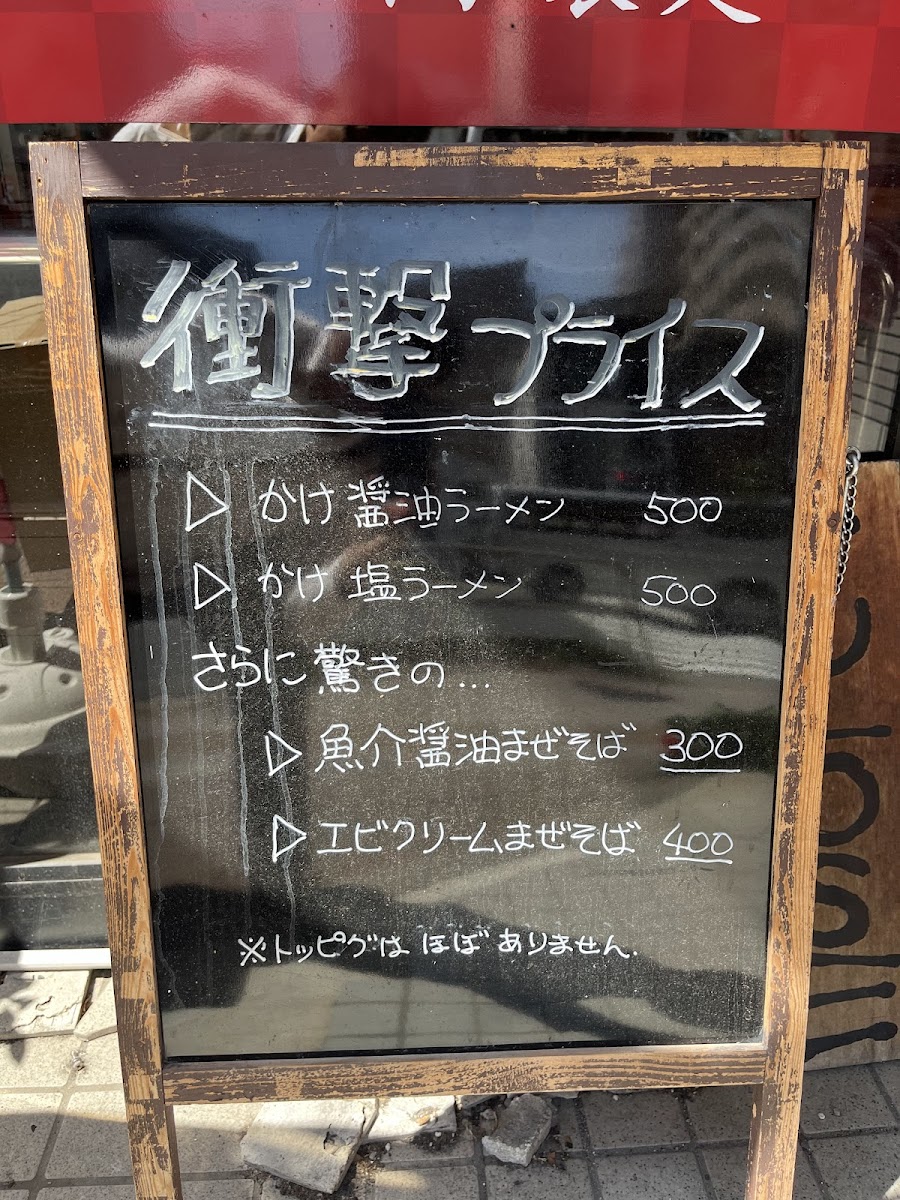 衝撃プライス
▷ かけ醤油ラーメン 500
▷ かけ塩ラーメン 500
さらに驚きの...
▷ 魚介醤油まぜそば 300
▷ エビクリームまぜそば 400
※トッピグは ほぼ ありません.